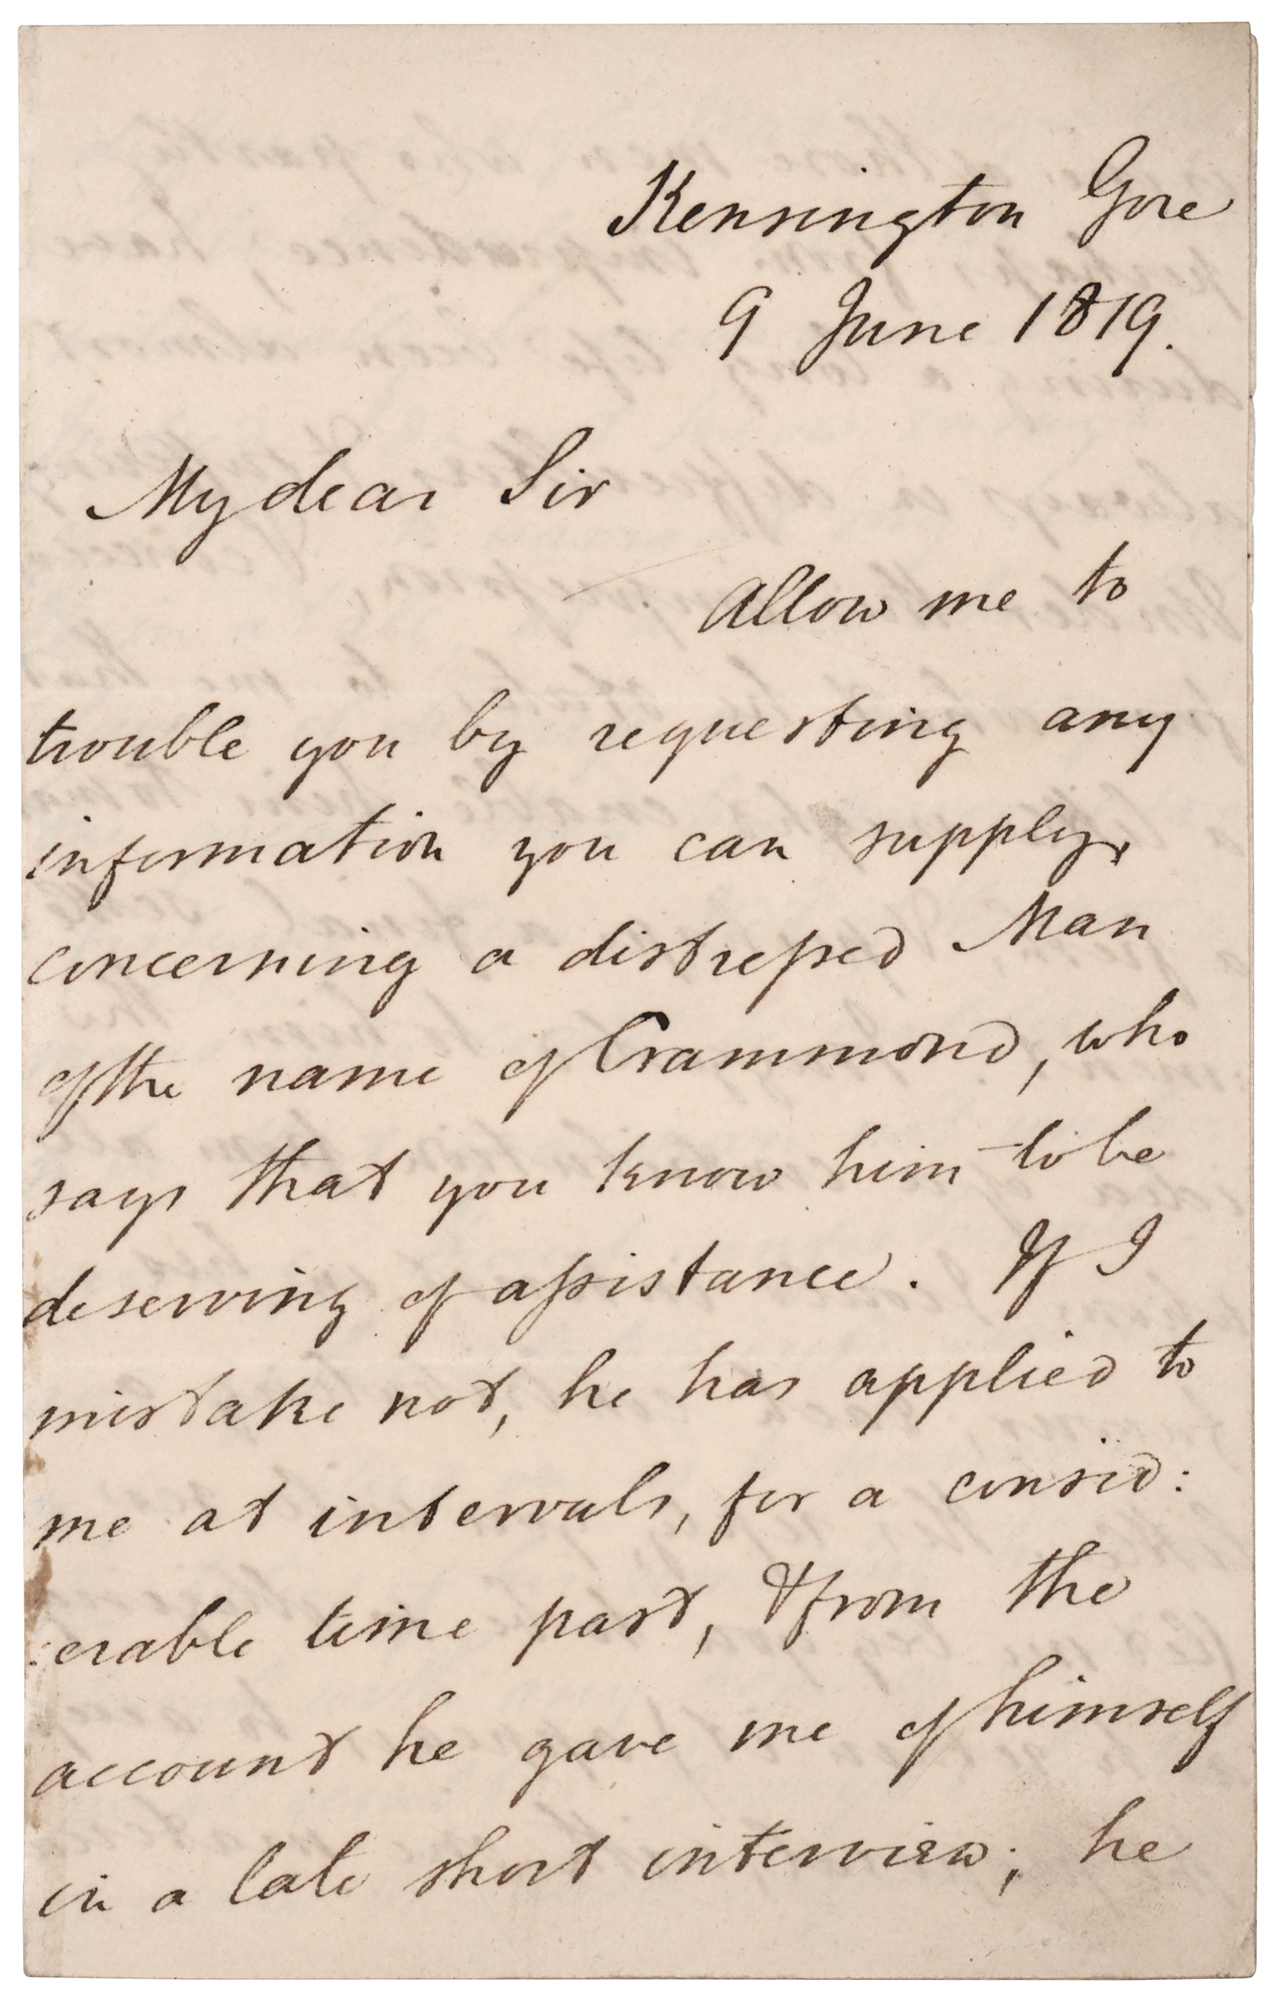 Kensington Gore
9 June 1819.
My dear Sir
Allow me to
trouble you by requesting any
information you can supply,
concerning a distreſsed Man
of the name of Crammond, who
says that you know him to be
deserving of aſsistance. If I
mistake not, he has applied to
me at intervals, for a consid:
:erable time past, & from the
account he gave me of himself
in a late short interview; he